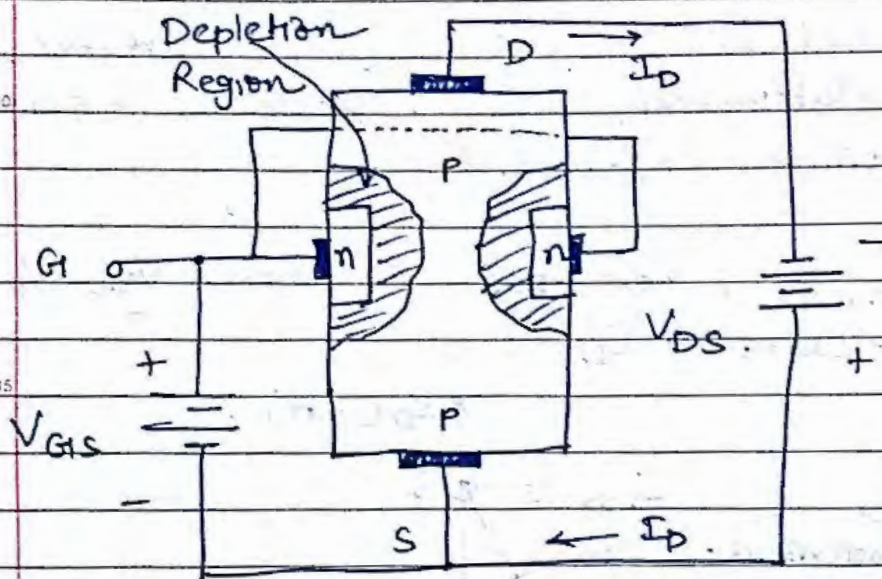 Depletion
Region
D → I_D
P
G n n
V_DS
-
+
+
V_GS
-
P
S ← I_D